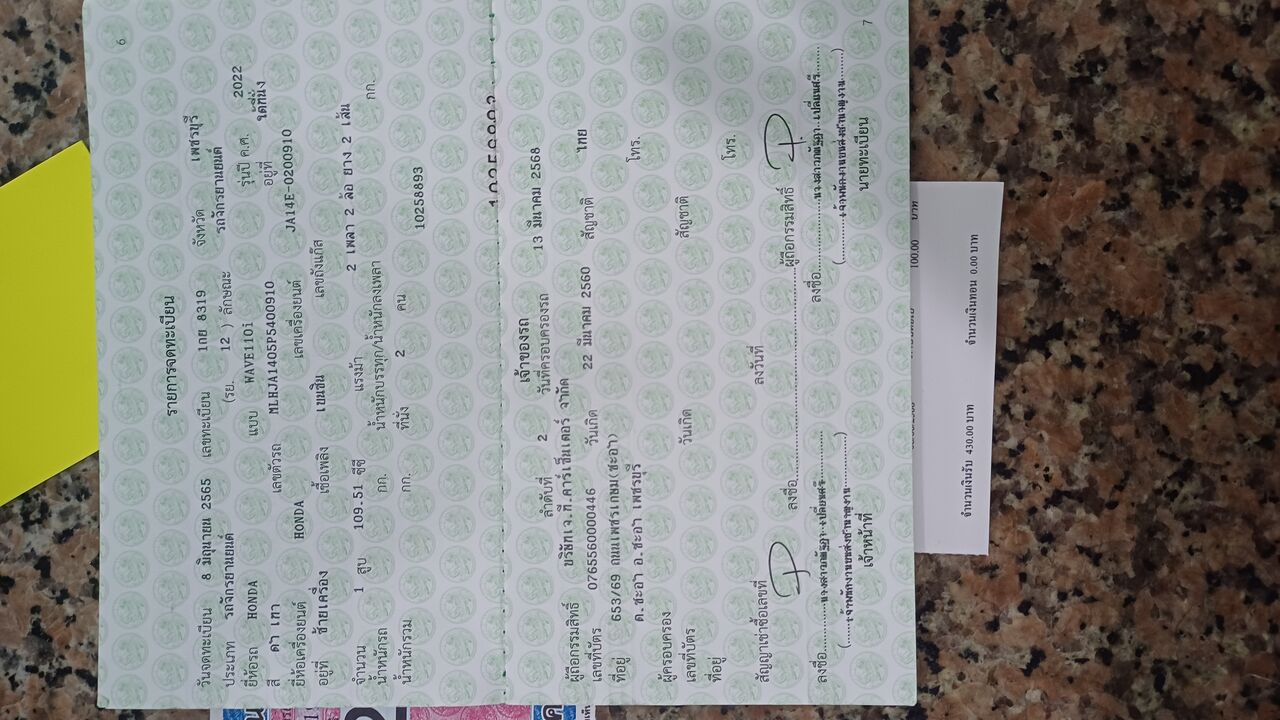 6
รายการจดทะเบียน
วันจดทะเบียน 8 มิถุนายน 2565 เลขทะเบียน 1กย 8319 จังหวัด เพชรบุรี
ประเภท รถจักรยานยนต์ (รย. 12 ) ลักษณะ รถจักรยานยนต์
ยี่ห้อรถ HONDA แบบ WAVE110i รุ่นปี ค.ศ. 2022
สี ดำ เทา เลขตัวรถ MLHJA1405P5400910 อยู่ที่ ใต้ที่นั่ง
ยี่ห้อเครื่องยนต์ HONDA เลขเครื่องยนต์ JA14E-0200910
อยู่ที่ ซ้ายเครื่อง เชื้อเพลิง เบนซิน เลขถังแก๊ส
จำนวน 1 สูบ 109.51 ซีซี แรงม้า 2 เพลา 2 ล้อ ยาง 2 เส้น
น้ำหนักรถ กก. น้ำหนักบรรทุก/น้ำหนักลงเพลา กก.
น้ำหนักรวม กก. ที่นั่ง 2 คน 10258893
เจ้าของรถ
ลำดับที่ 2 วันที่ครอบครองรถ 13 มีนาคม 2568
ผู้ถือกรรมสิทธิ์ บริษัทเจ.ที.คาร์เซ็นเตอร์ จำกัด
เลขที่บัตร 0765560000446 วันเกิด 22 มีนาคม 2560 สัญชาติ ไทย
ที่อยู่ 653/69 ถนนเพชรเกษม(ชะอำ)
ต.ชะอำ อ.ชะอำ เพชรบุรี โทร.
ผู้ครอบครอง
เลขที่บัตร วันเกิด สัญชาติ
ที่อยู่ โทร.
สัญญาเช่าซื้อเลขที่ ลงวันที่
ลงชื่อ ผู้ถือกรรมสิทธิ์
ลงชื่อ ลงชื่อ
เจ้าหน้าที่ นายทะเบียน
7
100.00 บาท
จำนวนเงินรับ 430.00 บาท จำนวนเงินทอน 0.00 บาท